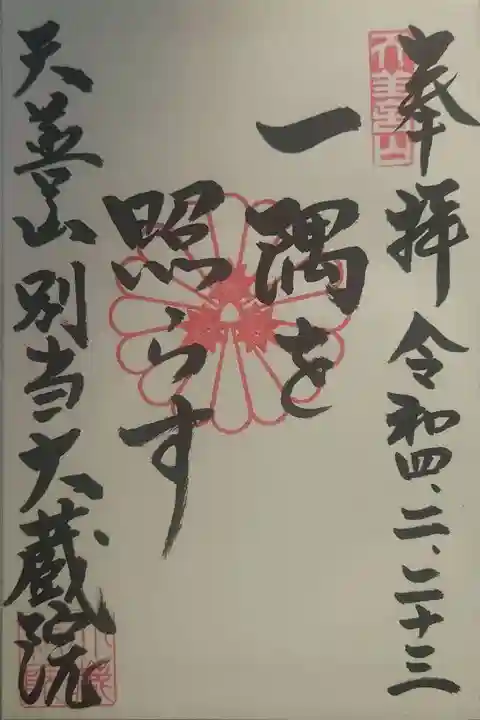 奉拝 令和四、二、二十三
一隅を
照らす
天善山 別当 大蔵院